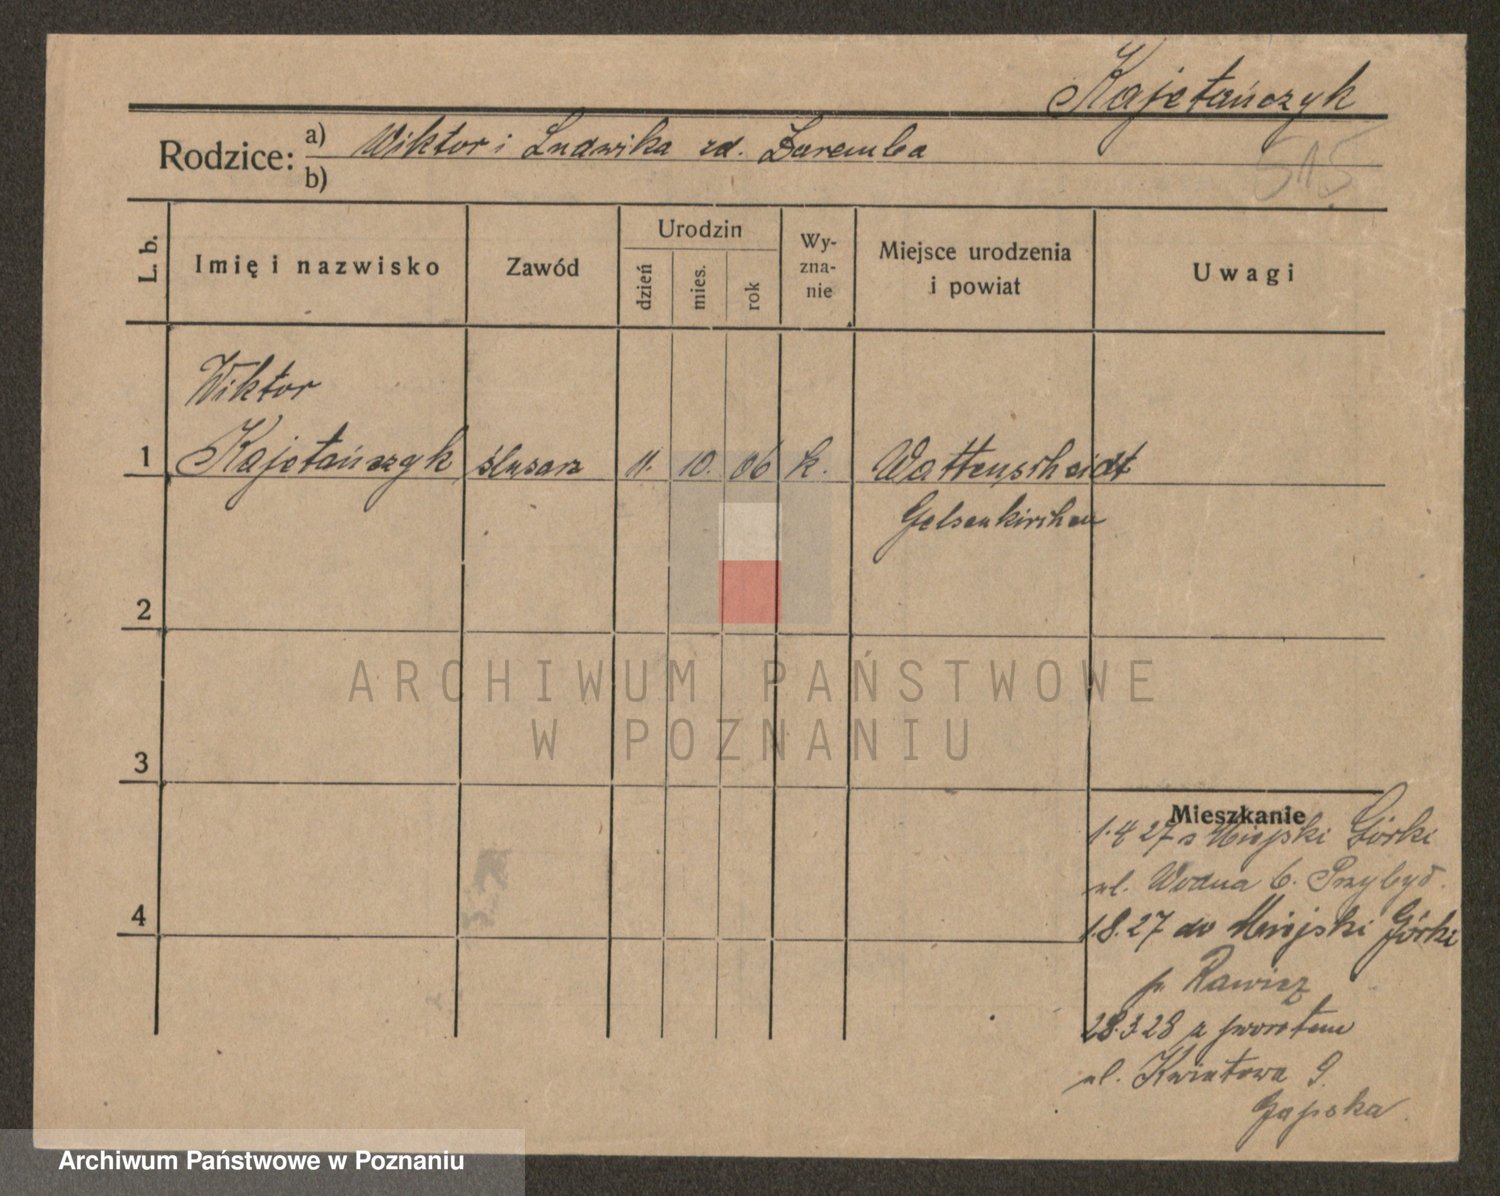 Kajetańczyk
515
Rodzice: a) Wiktor i Ludwika zd. Zaremba
b)
L. b.
Imię i nazwisko
Zawód
Urodzin
dzień
mies.
rok
Wy-
zna-
nie
Miejsce urodzenia
i powiat
Uwagi
Wiktor
1 Kajetańczyk ślusarz 11. 10. 06 k. Wattenscheidt
Gelsenkirchen
2
3
4
Mieszkanie
1.4 27 z Miejski Górki
ul. Wodna 6. Przybył.
1.8.27 do Miejski Górki
p. Rawicz
28.3 28 z powrotem
ul. Kwiatowa 9.
ARCHIWUM PAŃSTWOWE
W POZNANIU
Archiwum Państwowe w Poznaniu